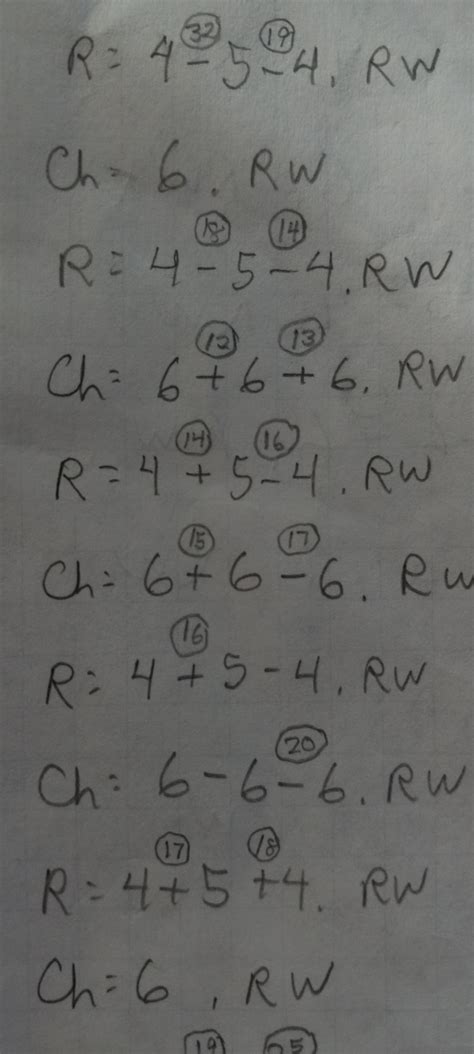 32 19
R= 4-5-4. RW
Ch= 6. RW
18 14
R= 4-5-4. RW
12 13
Ch= 6+6+6. RW
14 16
R= 4+5-4. RW
15 17
Ch= 6+6-6. RW
16
R= 4+5-4. RW
20
Ch= 6-6-6. RW
17 18
R= 4+5+4. RW
Ch= 6, RW
19 25